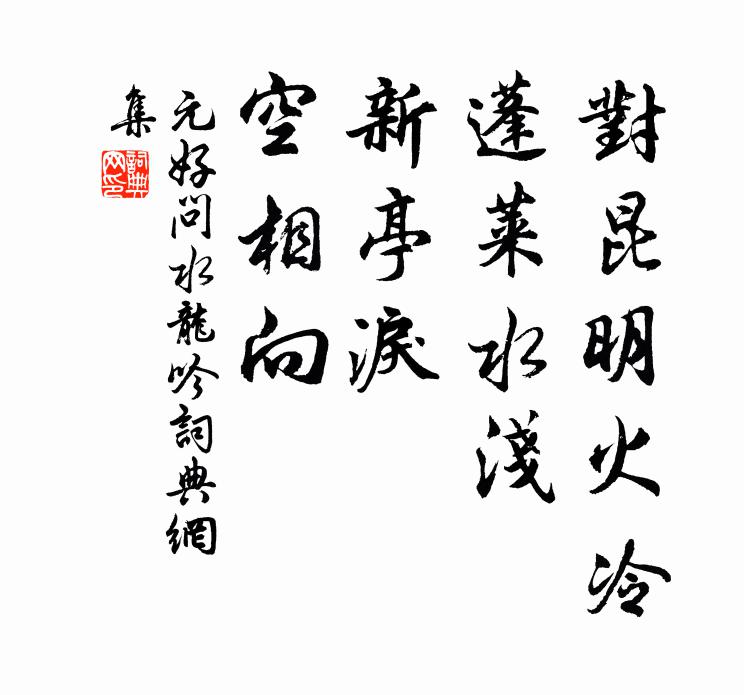 對昆明火冷
蓬萊水淺
新亭淚
空相向
元好問水龍吟詞典網
集
詞典
网印